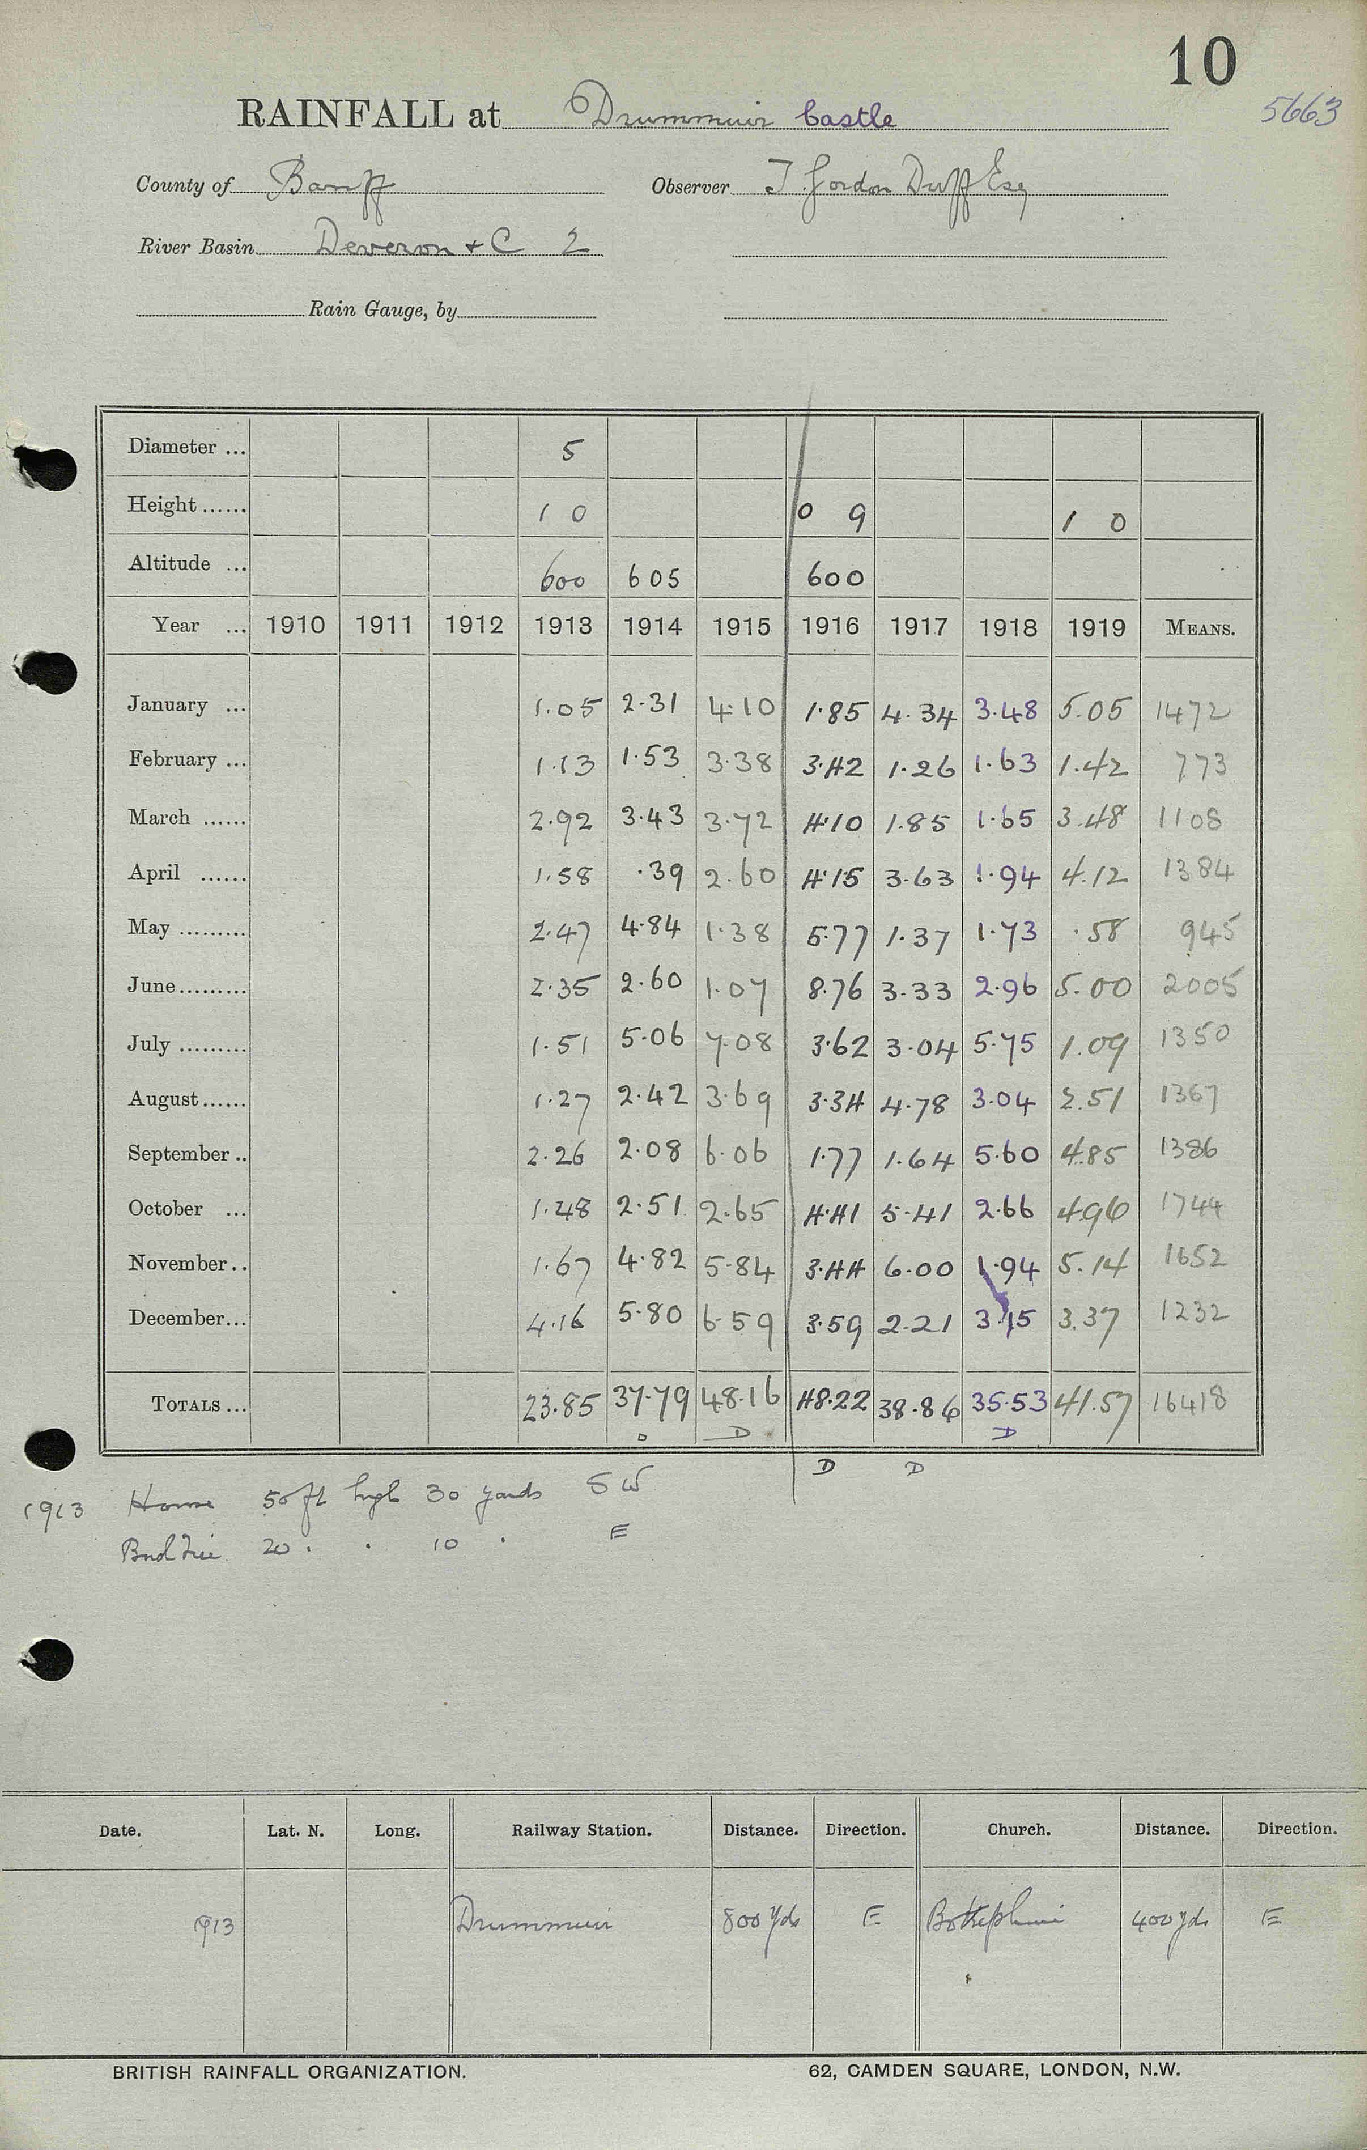 10
RAINFALL at Drummuir Castle 5663
County of Banff Observer T Gordon Duff Esq
River Basin Deveron & C 2
Rain Gauge, by
Diameter ... 5
Height ...... 1 0 0 9 1 0
Altitude ... 600 605 600
Year ... 1910 1911 1912 1913 1914 1915 1916 1917 1918 1919 MEANS.
January ... 1.05 2.31 4.10 1.85 4.34 3.48 5.05 1472
February ... 1.13 1.53 3.38 3.42 1.26 1.63 1.42 773
March ...... 2.92 3.43 3.72 4.10 1.85 1.65 3.48 1108
April ...... 1.58 .39 2.60 4.15 3.63 1.94 4.12 1384
May ......... 2.47 4.84 1.38 5.77 1.37 1.73 .58 945
June......... 2.35 2.60 1.07 8.76 3.33 2.96 5.00 2005
July ......... 1.51 5.06 7.08 3.62 3.04 5.75 1.09 1350
August...... 1.27 2.42 3.69 3.34 4.78 3.04 2.51 1367
September .. 2.26 2.08 6.06 1.77 1.64 5.60 4.85 1386
October ... 1.48 2.51 2.65 4.41 5.41 2.66 4.96 1744
November.. 1.67 4.82 5.84 3.44 6.00 1.94 5.14 1652
December... 4.16 5.80 6.59 3.59 2.21 3.15 3.37 1232
TOTALS ... 23.85 37.79 48.16 48.22 38.86 35.53 41.57 16418
D D D
D D
1913 House 50 ft high 30 yards SW
20 . . 10 . E
Date. Lat. N. Long. Railway Station. Distance. Direction. Church. Distance. Direction.
1913 Drummuir 800 yds E Botriphnie 400 yds E
BRITISH RAINFALL ORGANIZATION. 62, CAMDEN SQUARE, LONDON, N.W.